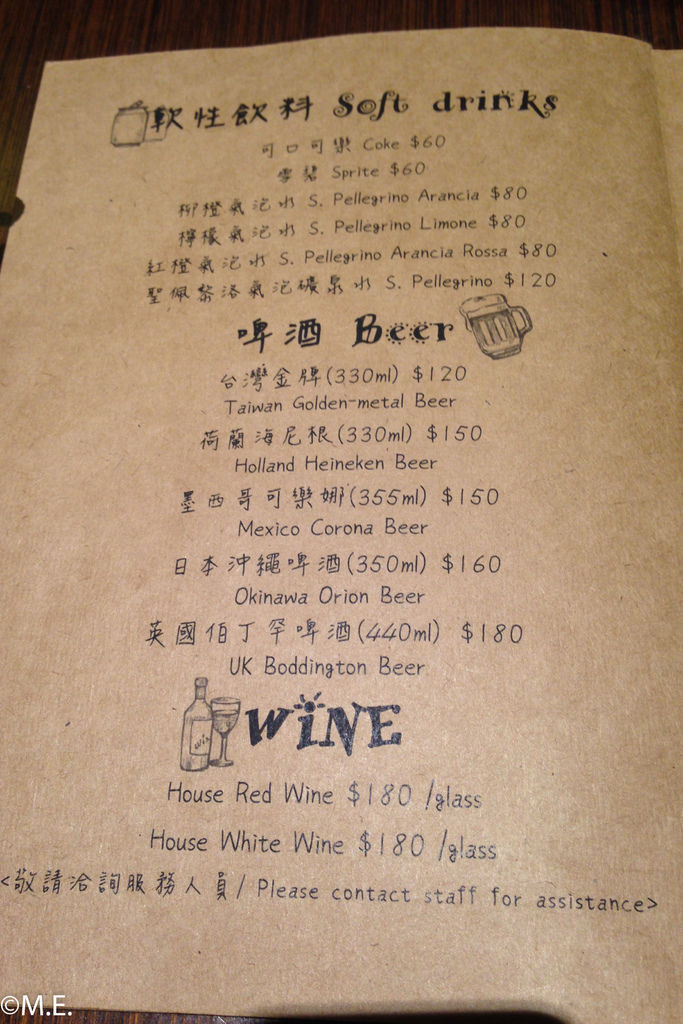 軟性飲料 Soft drinks
可口可樂 Coke $60
雪碧 Sprite $60
柳橙氣泡水 S. Pellegrino Arancia $80
檸檬氣泡水 S. Pellegrino Limone $80
紅橙氣泡水 S. Pellegrino Arancia Rossa $80
聖佩黎洛氣泡礦泉水 S. Pellegrino $120
啤酒 Beer
台灣金牌(330ml) $120
Taiwan Golden-metal Beer
荷蘭海尼根(330ml) $150
Holland Heineken Beer
墨西哥可樂娜(355ml) $150
Mexico Corona Beer
日本沖繩啤酒(350ml) $160
Okinawa Orion Beer
英國伯丁罕啤酒(440ml) $180
UK Boddington Beer
WiNE
House Red Wine $180 /glass
House White Wine $180 /glass
<敬請洽詢服務人員/ Please contact staff for assistance>
©M.E.